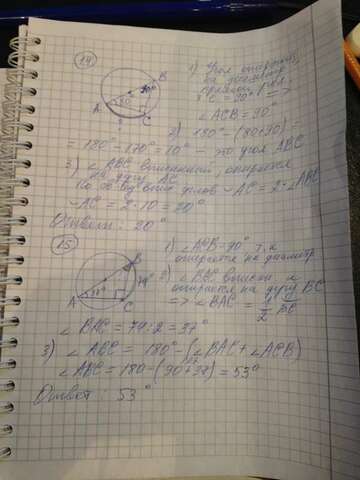 14
B
90°
A
80
C
1) Угол опирающ.
на диаметр
прямой
C = 90° =>
∠ACB = 90°
2) 180° - (80+90)
= 180° - 170° = 10° - это угол ABC
3) ∠ABC вписанный, опирается
на дугу AC
По св-ву впис углов ◡AC = 2·∠ABC
◡AC = 2·10 = 20°
Ответ: 20°
15
B
74°
A
C
1) ∠ACB = 90° т.к
опирается на диаметр
2) ∠BAC впис и
опирается на дугу BC
=> ∠BAC = 1/2 BC
∠BAC = 74:2 = 37°
3) ∠ABC = 180° - (∠BAC + ∠ACB)
∠ABC = 180 - (90+37) = 53°
Ответ: 53°